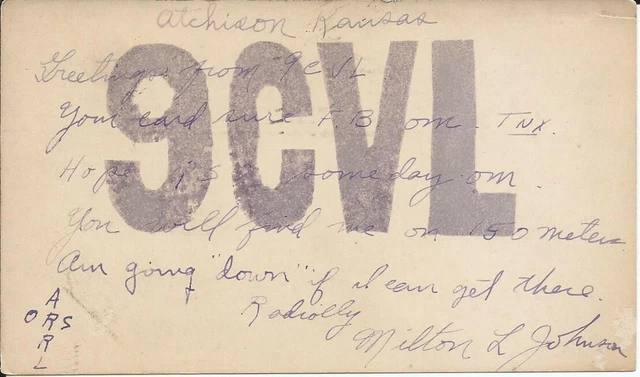 Atchison Kansas
9CVL
Greetings from 9CVL
Your card sure F.B om. TNX.
Hope someday om.
You will find me on 150 meters
Am going "down" if I can get there.
Radiolly
Milton L Johnson
ARRL
ORS